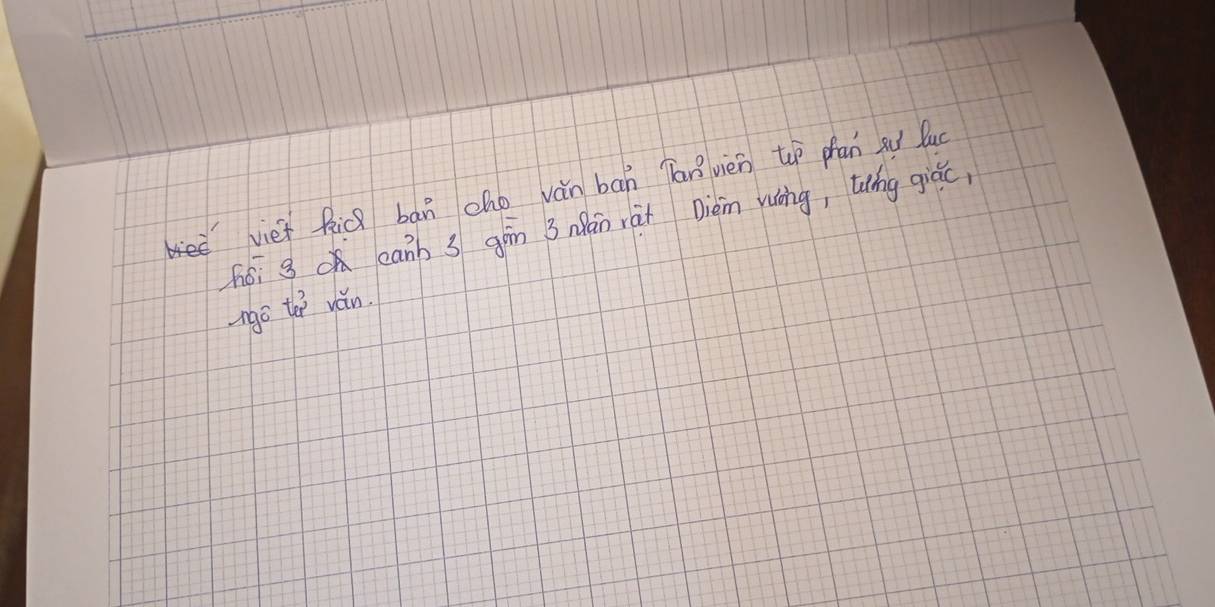 viết kịch bản cho văn bản Tản viên từ phán sự lục
hồi 3 cảnh 3 gồm 3 nhân vật Diêm vương, tướng giặc,
ngô tử văn.